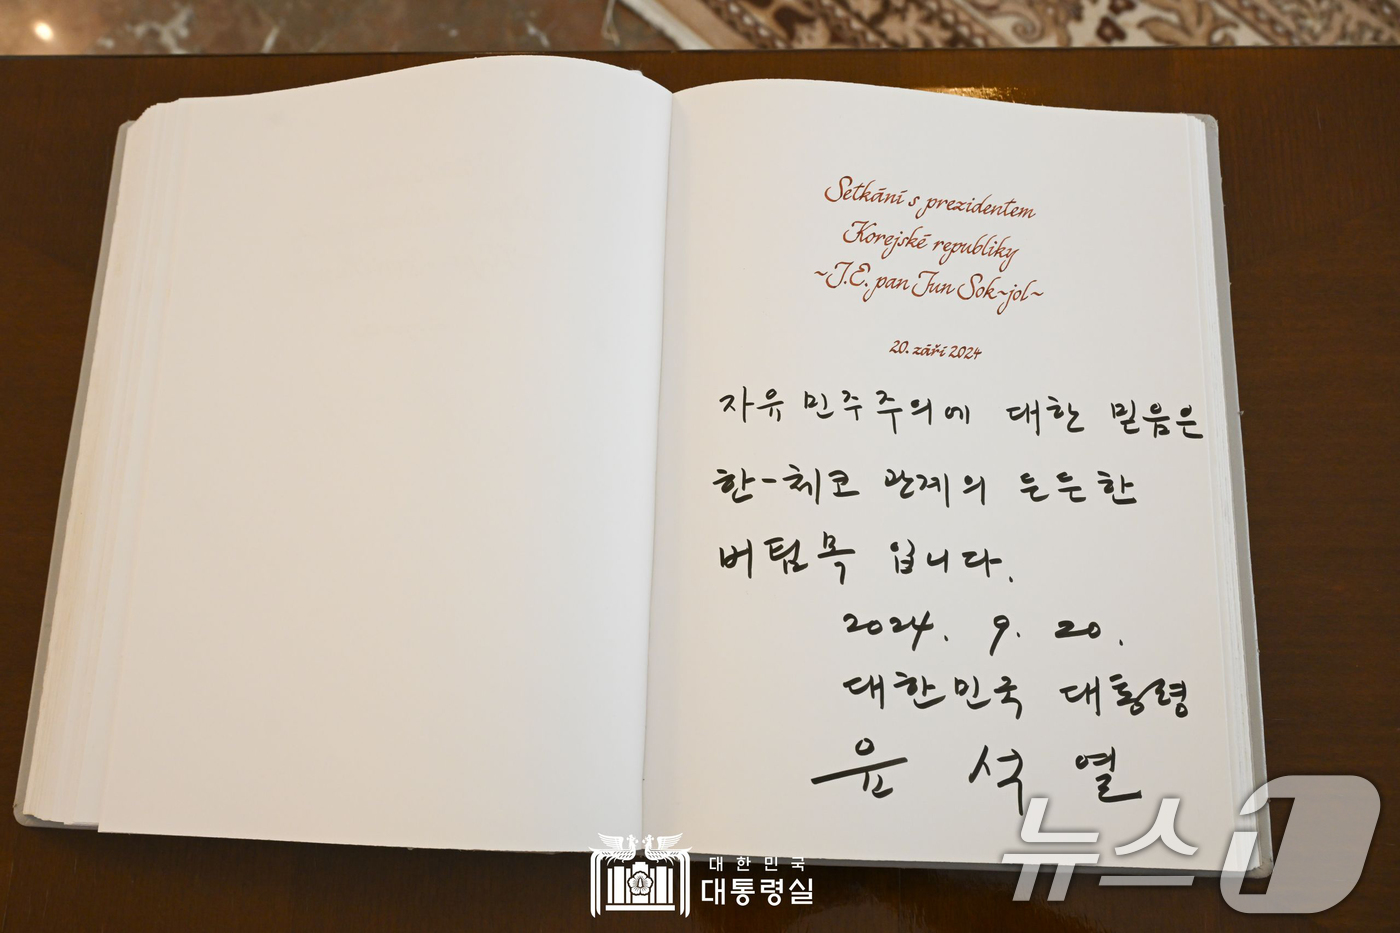 Setkání s prezidentem
Korejské republiky
~J.E. pan Jun Sok~jol~
20. září 2024
자유민주주의에 대한 믿음은
한-체코 관계의 든든한
버팀목 입니다.
2024. 9. 20.
대한민국 대통령
윤 석 열
대한민국
대통령실
뉴스1